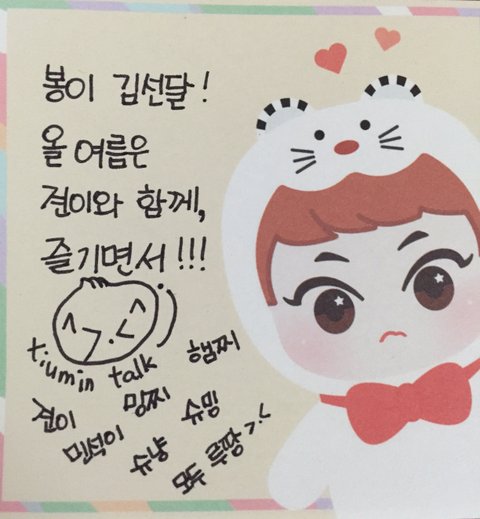 봉이 김선달!
올 여름은
견이와 함께,
즐기면서!!!
tiumin talk 햄찌
견이 밍찌 슈밍
멘석이 슈냥
모두 루팡 >.<